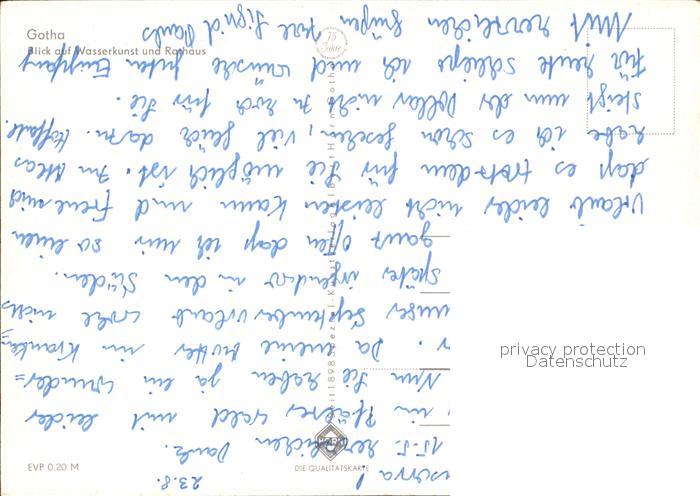 Gotha
Blick auf Wasserkunst und Rathaus
75 Jahre
EVP 0.20 M
DIE QUALITÄTSKARTE
privacy protection
Datenschutz
23.8.
15.5. herzlichen Dank.
in Pfälzer Wald mit leider
Nun Sie haben ja ein wunder=
. Da meine Mutter im Kranken=
unser September Urlaub wohl nichts
später irgendwo in den Süden.
ganz offen daß ich mir so einen
Urlaub leider nicht leisten kann und freue mich
daß es trotzdem für Sie möglich ist. Im Atlas
habe ich es schon gesehen, viel Glück dazu. Hoffentl.
steigt nun der Dollar nicht zu hoch für Sie.
Für heute schließe ich und wünsche guten Empfang
Mit herzlichen Grüßen Ihre Sigrid